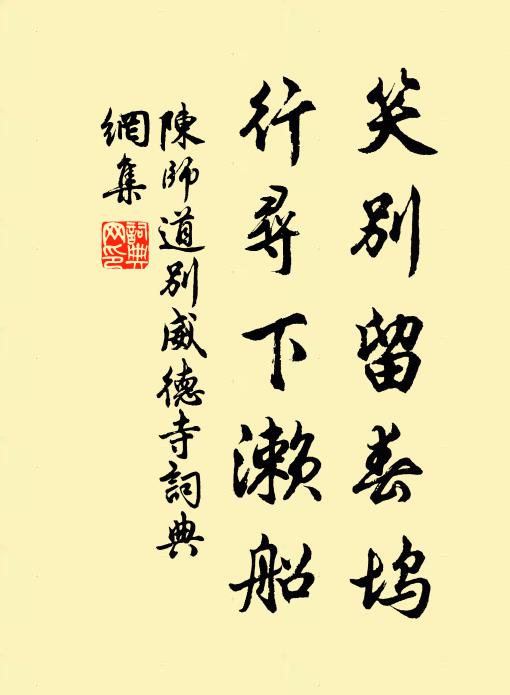 笑別留春塢
行尋下瀨船
陳師道別威德寺詞典
網集
詞典
网印